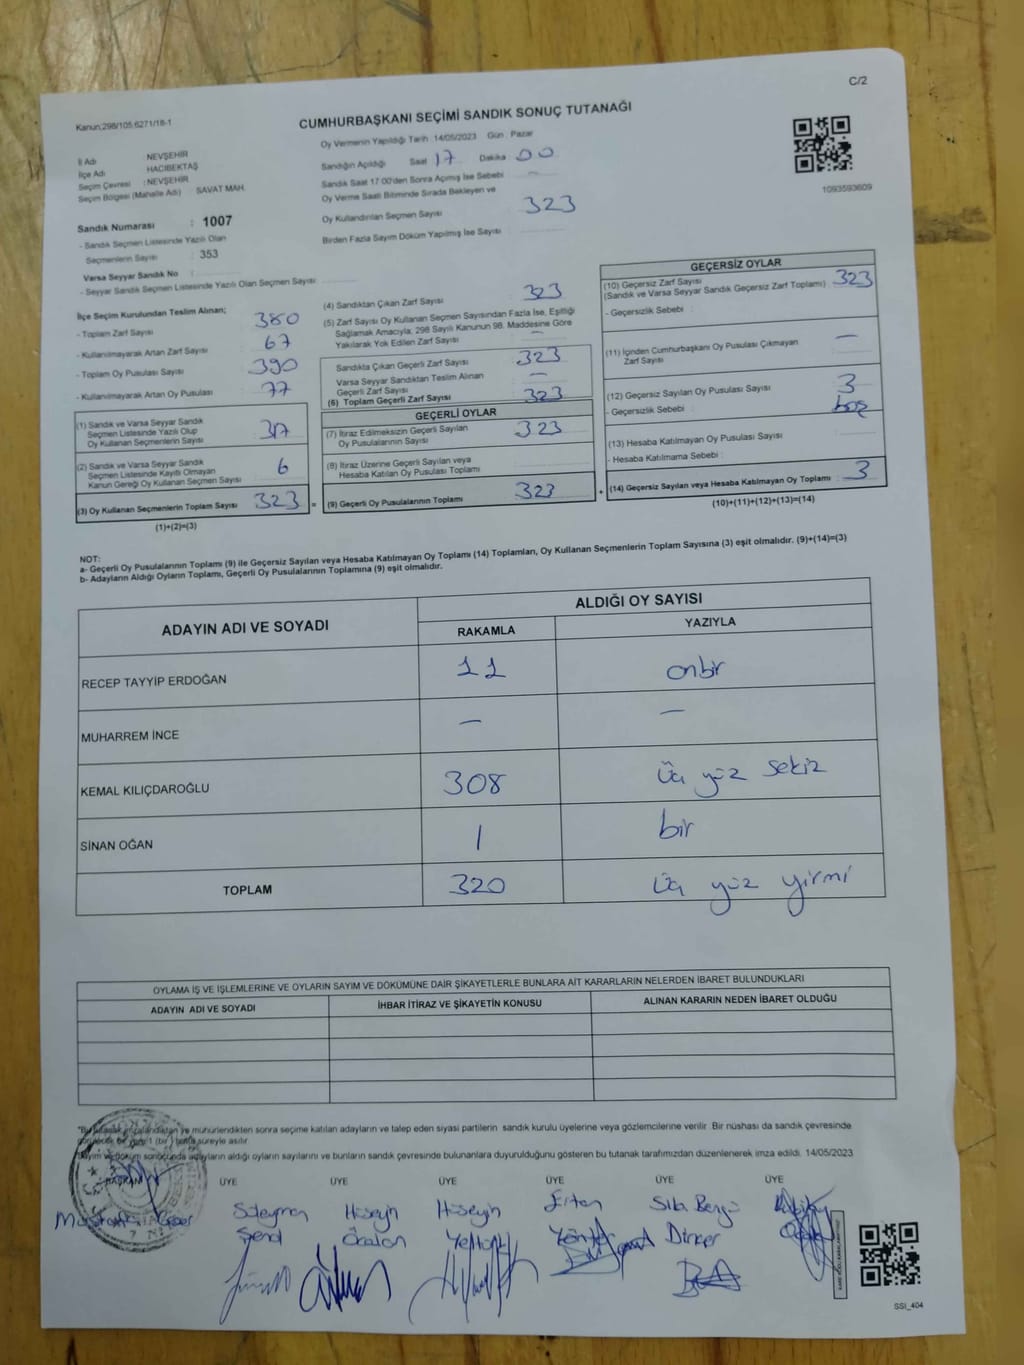 C/2
Kanun;298/105;6271/18-1
CUMHURBAŞKANI SEÇİMİ SANDIK SONUÇ TUTANAĞI
Oy Vermenin Yapıldığı Tarih :14/05/2023 Gün : Pazar
İl Adı : NEVŞEHİR
İlçe Adı : HACIBEKTAŞ
Seçim Çevresi : NEVŞEHİR
Seçim Bölgesi (Mahalle Adı) : SAVAT MAH.
Sandığın Açıldığı Saat 17 Dakika 00
Sandık Saat 17:00'den Sonra Açımış İse Sebebi –
Oy Verme Saati Bitiminde Sırada Bekleyen ve
Oy Kullandırılan Seçmen Sayısı : 323
Birden Fazla Sayım Döküm Yapılmış İse Sayısı :
1093593609
Sandık Numarası : 1007
- Sandık Seçmen Listesinde Yazılı Olan
Seçmenlerin Sayısı : 353
Varsa Seyyar Sandık No :
- Seyyar Sandık Seçmen Listesinde Yazılı Olan Seçmen Sayısı:
İlçe Seçim Kurulundan Teslim Alınan;
- Toplam Zarf Sayısı : 380
- Kullanılmayarak Artan Zarf Sayısı : 67
- Toplam Oy Pusulası Sayısı : 390
- Kullanılmayarak Artan Oy Pusulası : 77
(1) Sandık ve Varsa Seyyar Sandık
Seçmen Listesinde Yazılı Olup
Oy Kullanan Seçmenlerin Sayısı : 317
(2) Sandık ve Varsa Seyyar Sandık
Seçmen Listesinde Kayıtlı Olmayan
Kanun Gereği Oy Kullanan Seçmen Sayısı : 6
(3) Oy Kullanan Seçmenlerin Toplam Sayısı : 323
(1)+(2)=(3)
(4) Sandıktan Çıkan Zarf Sayısı : 323
(5) Zarf Sayısı Oy Kullanan Seçmen Sayısından Fazla İse, Eşitliği
Sağlamak Amacıyla; 298 Sayılı Kanunun 98. Maddesine Göre
Yakılarak Yok Edilen Zarf Sayısı : –
Sandıkta Çıkan Geçerli Zarf Sayısı : 323
Varsa Seyyar Sandıktan Teslim Alınan
Geçerli Zarf Sayısı : –
(6) Toplam Geçerli Zarf Sayısı : 323
GEÇERLİ OYLAR
(7) İtiraz Edilmeksizin Geçerli Sayılan
Oy Pusulalarının Sayısı : 323
(8) İtiraz Üzerine Geçerli Sayılan veya
Hesaba Katılan Oy Pusulası Toplamı :
= (9) Geçerli Oy Pusulalarının Toplamı : 323 +
GEÇERSİZ OYLAR
(10) Geçersiz Zarf Sayısı
(Sandık ve Varsa Seyyar Sandık Geçersiz Zarf Toplamı) : 323
- Geçersizlik Sebebi :
(11) İçinden Cumhurbaşkanı Oy Pusulası Çıkmayan
Zarf Sayısı : –
(12) Geçersiz Sayılan Oy Pusulası Sayısı : 3
- Geçersizlik Sebebi : boş
(13) Hesaba Katılmayan Oy Pusulası Sayısı :
- Hesaba Katılmama Sebebi :
(14) Geçersiz Sayılan veya Hesaba Katılmayan Oy Toplamı : 3
(10)+(11)+(12)+(13)=(14)
NOT:
a- Geçerli Oy Pusulalarının Toplamı (9) ile Geçersiz Sayılan veya Hesaba Katılmayan Oy Toplamı (14) Toplamları, Oy Kullanan Seçmenlerin Toplam Sayısına (3) eşit olmalıdır. (9)+(14)=(3)
b- Adayların Aldığı Oyların Toplamı, Geçerli Oy Pusulalarının Toplamına (9) eşit olmalıdır.
ADAYIN ADI VE SOYADI
ALDIĞI OY SAYISI
RAKAMLA YAZIYLA
RECEP TAYYİP ERDOĞAN 11 onbir
MUHARREM İNCE – –
KEMAL KILIÇDAROĞLU 308 Üç yüz sekiz
SİNAN OĞAN 1 bir
TOPLAM 320 Üç yüz yirmi
OYLAMA İŞ VE İŞLEMLERİNE VE OYLARIN SAYIM VE DÖKÜMÜNE DAİR ŞİKAYETLERLE BUNLARA AİT KARARLARIN NELERDEN İBARET BULUNDUKLARI
ADAYIN ADI VE SOYADI İHBAR İTİRAZ VE ŞİKAYETİN KONUSU ALINAN KARARIN NEDEN İBARET OLDUĞU
*Bu tutanak imzalandıktan ve mühürlendikten sonra seçime katılan adayların ve talep eden siyasi partilerin sandık kurulu üyelerine veya gözlemcilerine verilir. Bir nüshası da sandık çevresinde
görülecek bir yere 1 (bir) hafta süreyle asılır.
Sayım ve döküm sonucunda adayların aldığı oyların sayılarını ve bunların sandık çevresinde bulunanlara duyurulduğunu gösteren bu tutanak tarafımızdan düzenlenerek imza edildi. 14/05/2023
BAŞKAN ÜYE ÜYE ÜYE ÜYE ÜYE ÜYE
Süleyman Hüseyin Hüseyin Sıla Bengü
Şenol Dinçer
SSI_404